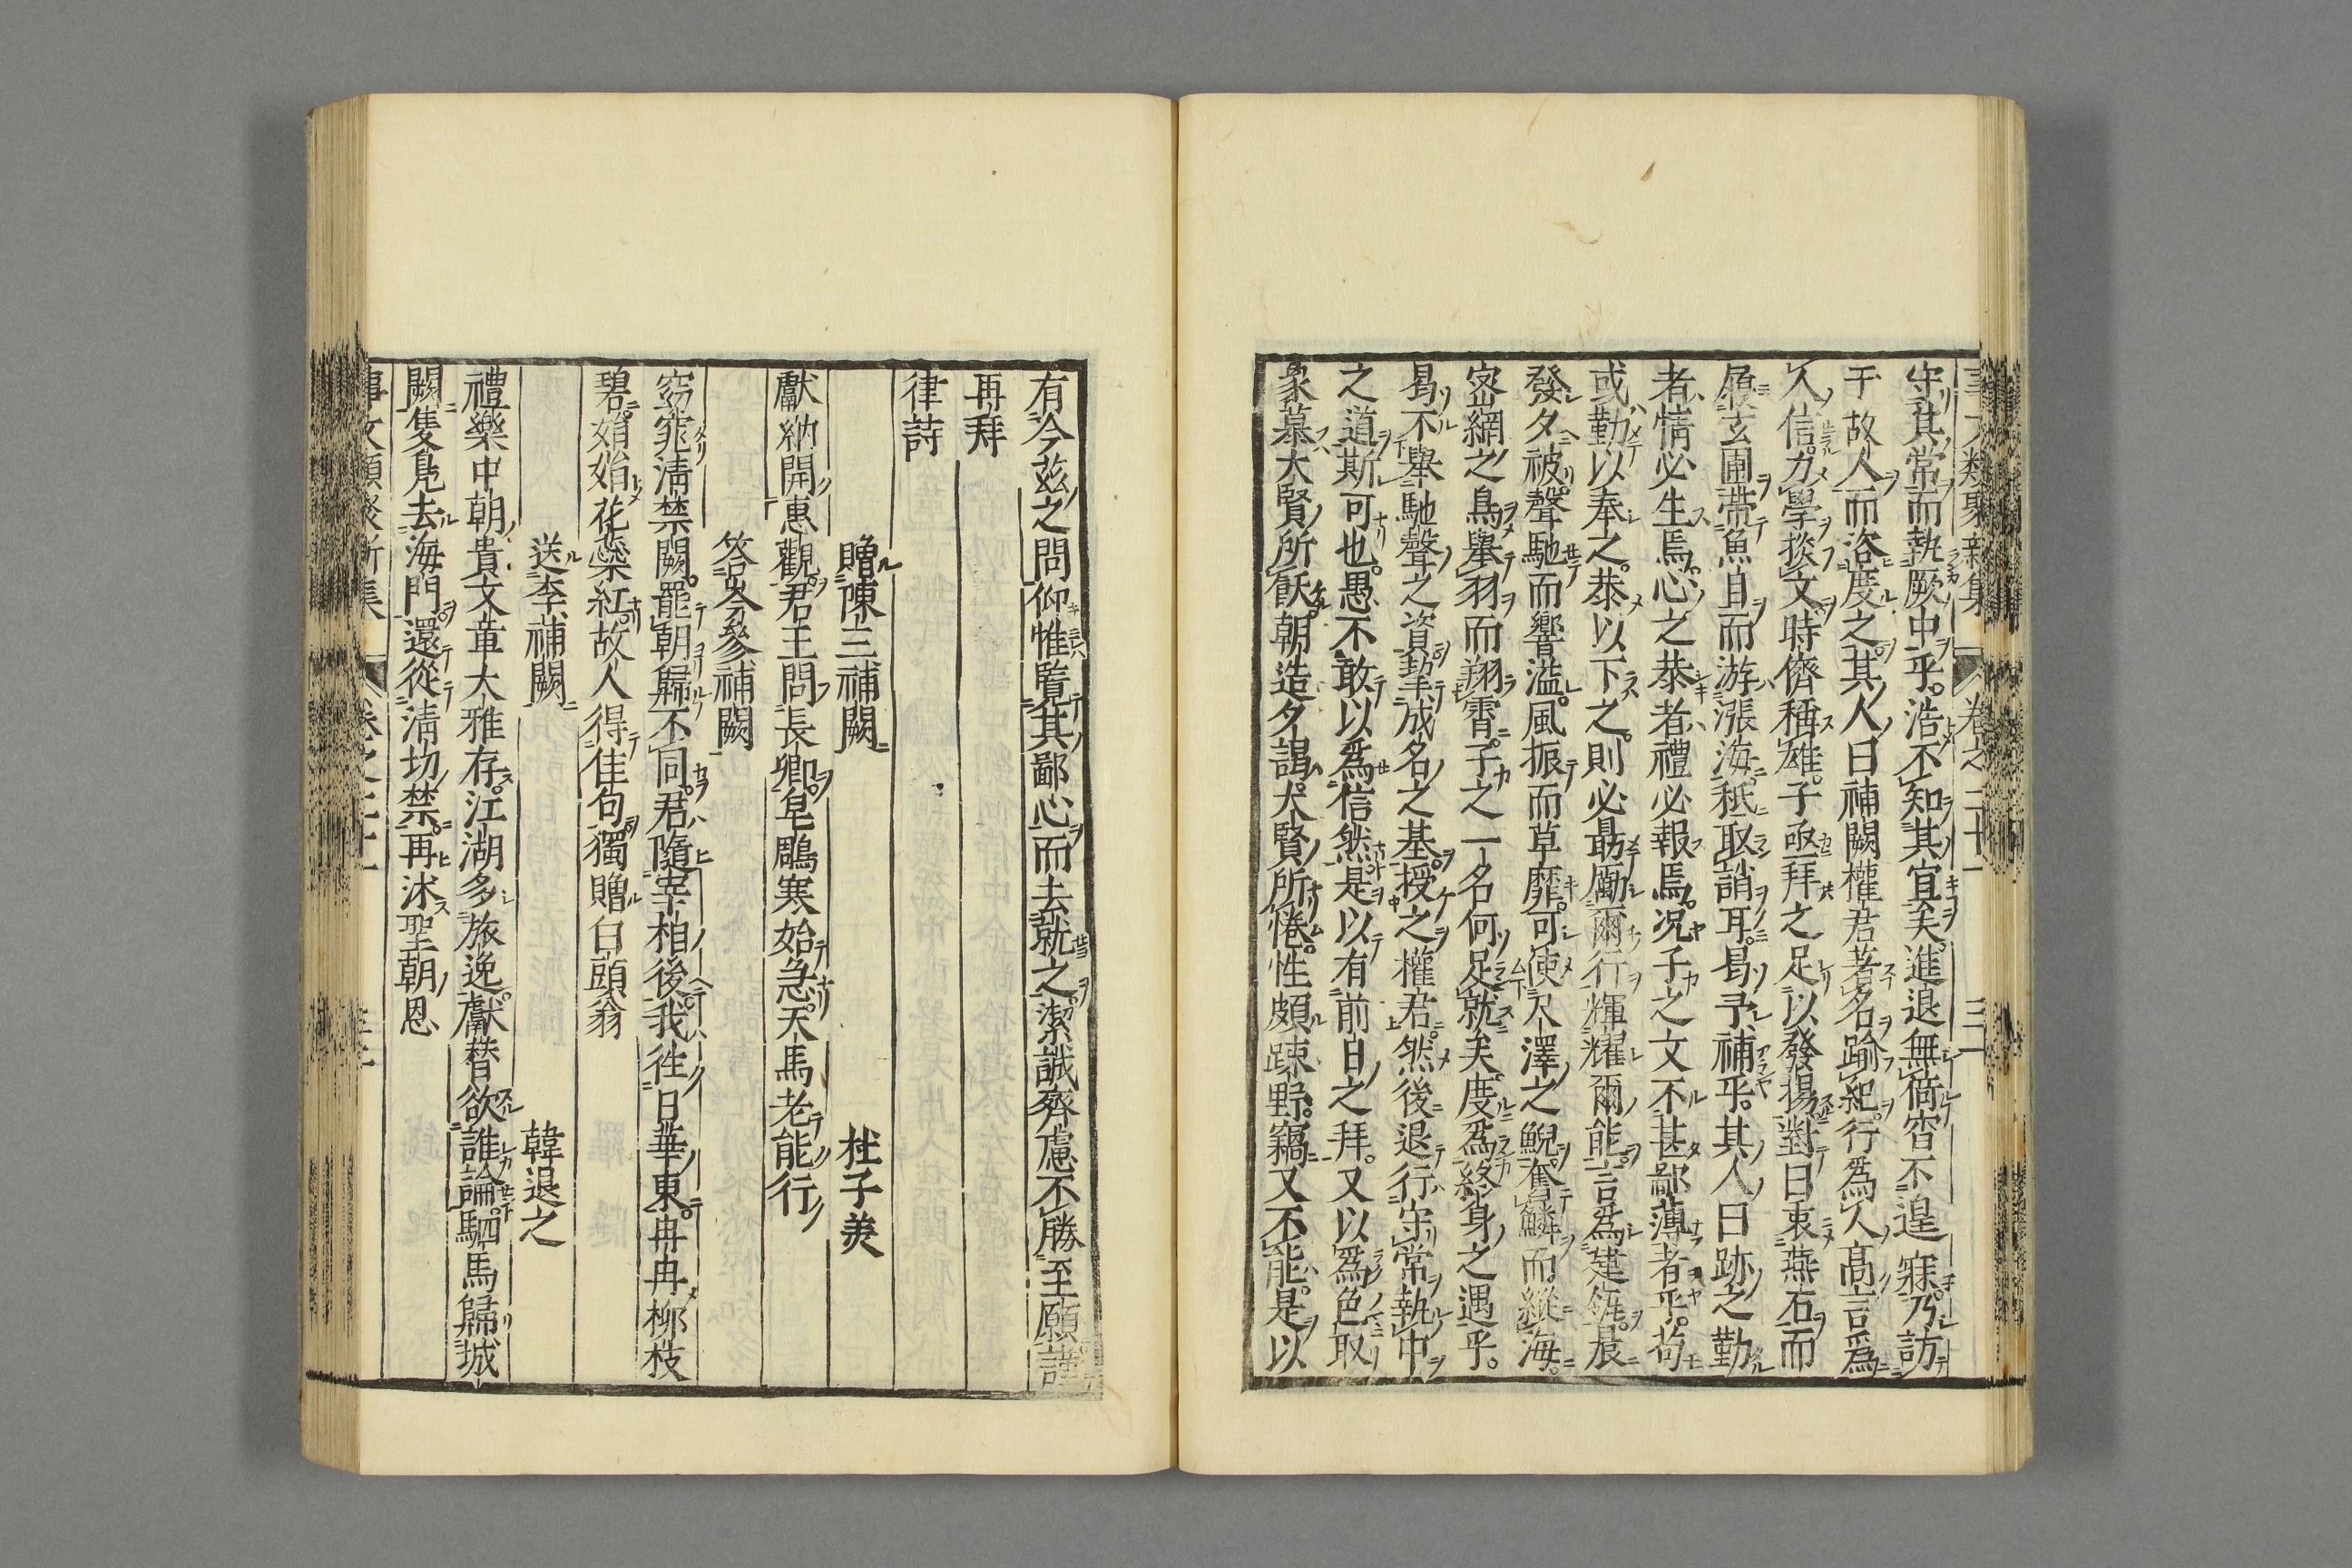 事文類聚新集 卷之二十一 三一
守其常而執厥中乎浩不知其宜矣進退無徛宿不遑寐乃訪
于故人而洽度之其人曰補闕權君著名踰紀行爲人高言爲
人信力學掞文時儕稱雄子亟拜之足以發揚對曰衷燕石而
履玄圃帶魚目而游漲海秖取誚耳曷予補乎其人曰跡之勤
者情必生焉心之恭者禮必報焉况子之文不甚鄙薄者乎苟
或勤以奉之恭以下之則必勗勵爾行輝耀爾能言爲建瓴晨
發夕被聲馳而響溢風振而草靡可使尺澤之鯢奮鱗而縱海
宻網之鳥舉羽而翔霄子之一名何足就矣度爲終身之遇乎
曷不舉馳聲之資挈成名之基授之權君然後退行守常執中
之道斯可也愚不敢以爲信然是以有前日之拜又以爲色取
象慕大賢所飫朝造夕謁大賢所惓性頗踈野竊又不能是以
有今茲之問仰惟覧其鄙心而去就之潔誠齊慮不勝至願謹
再拜
律詩
贈陳二補闕 杜子美
獻納開惠觀君王問長卿皂鵰寒始急天馬老能行
答岑參補闕
窈窕淸禁闕罷朝歸不同君隨宰相後我往日華東冉冉柳枝
碧娟娟花蘂紅故人得佳句獨贈白頭翁
送李補闕 韓退之
禮樂中朝貴文章大雅存江湖多旅逸獻替欲誰論駟馬歸城
闕隻鳧去海門還從淸切禁再沐聖朝恩
事文類聚新集 卷之二十一